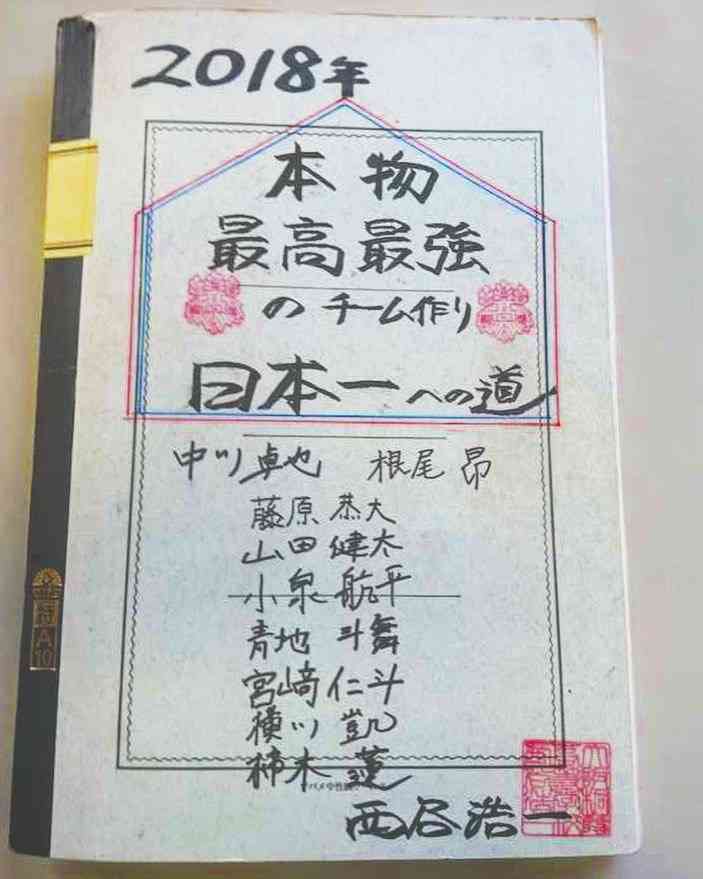 2018年
本物
最高最強
の チーム作り
日本一への道
中川 卓也 根尾 昂
藤原 恭大
山田 健太
小泉 航平
青地 斗舞
宮﨑 仁斗
横川 凱
柿木 蓮
西谷浩一
A
10